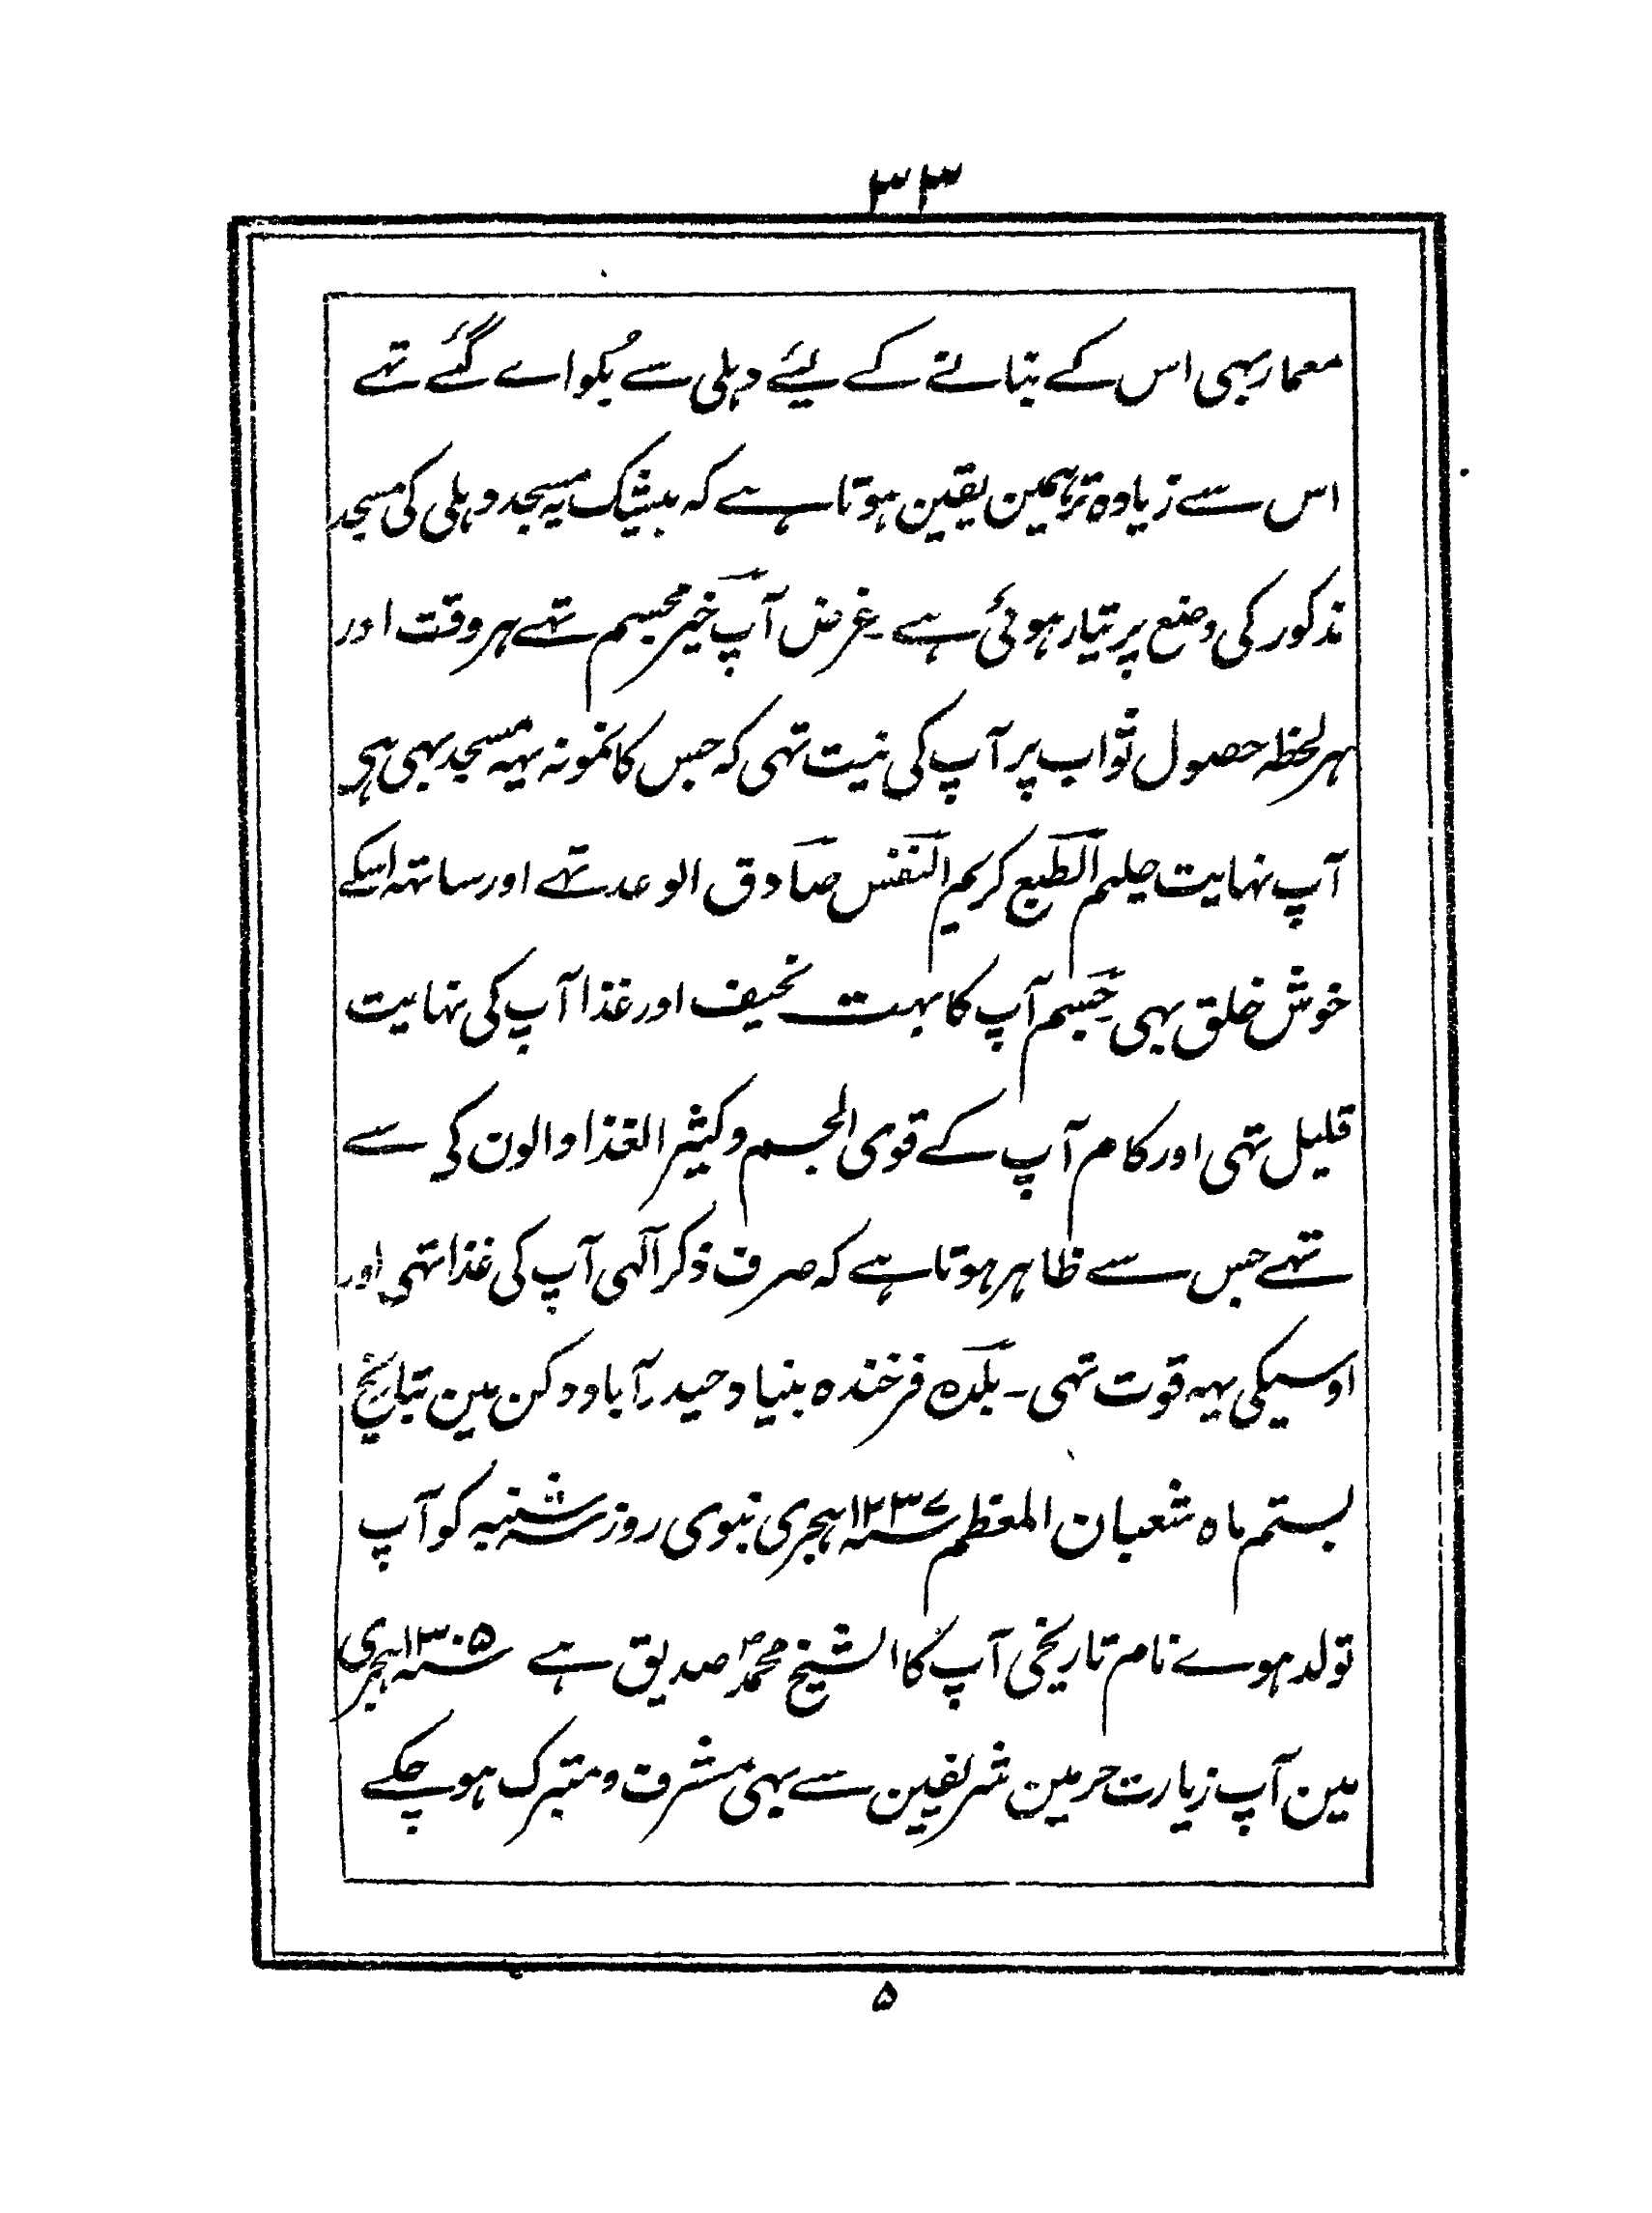 ۳۳
معمار بہی اس کے بنانے کے لیئے دہلی سے بُلواے گئے تہے
اس سے زیادہ تر ہمین یقین ہوتا ہے کہ بیشک یہ مسجد دہلی کی مسجد
مذکور کی وضع پر تیار ہوئی ہے ۔ غرض آپ خیر مجسم تہے ہر وقت اور
ہر لحظہ حصول ثواب پر آپ کی نیت تہی کہ جس کا نمونہ یہہ مسجد بہی ہی
آپ نہایت حلیم الطبع کریم النفس صادق الوعد تہے اور ساتہہ اسکے
خوش خلق بہی جسم آپ کا بہت نحیف اور غذا آپ کی نہایت
قلیل تہی اور کام آپ کے قوی الجسم و کثیر الغذا والون کے سے
تہے جس سے ظاہر ہوتا ہے کہ صرف ذکر آلہی آپ کی غذا تہی اور
اوسیکی یہہ قوت تہی ۔ بلدہ فرخندہ بنیاد حیدر آباد دکن مین بتاریخ
بستم ماہ شعبان المعظم سنہ ۱۲۳۷ ہجری نبوی روز سہ شنبہ کو آپ
تولد ہوے نام تاریخی آپ کا الشیخ محمد صدیق ہے سنہ ۱۳۰۵ ہجری
مین آپ زیارت حرمین شریفین سے بہی مشرف و متبرک ہو چکے
۵